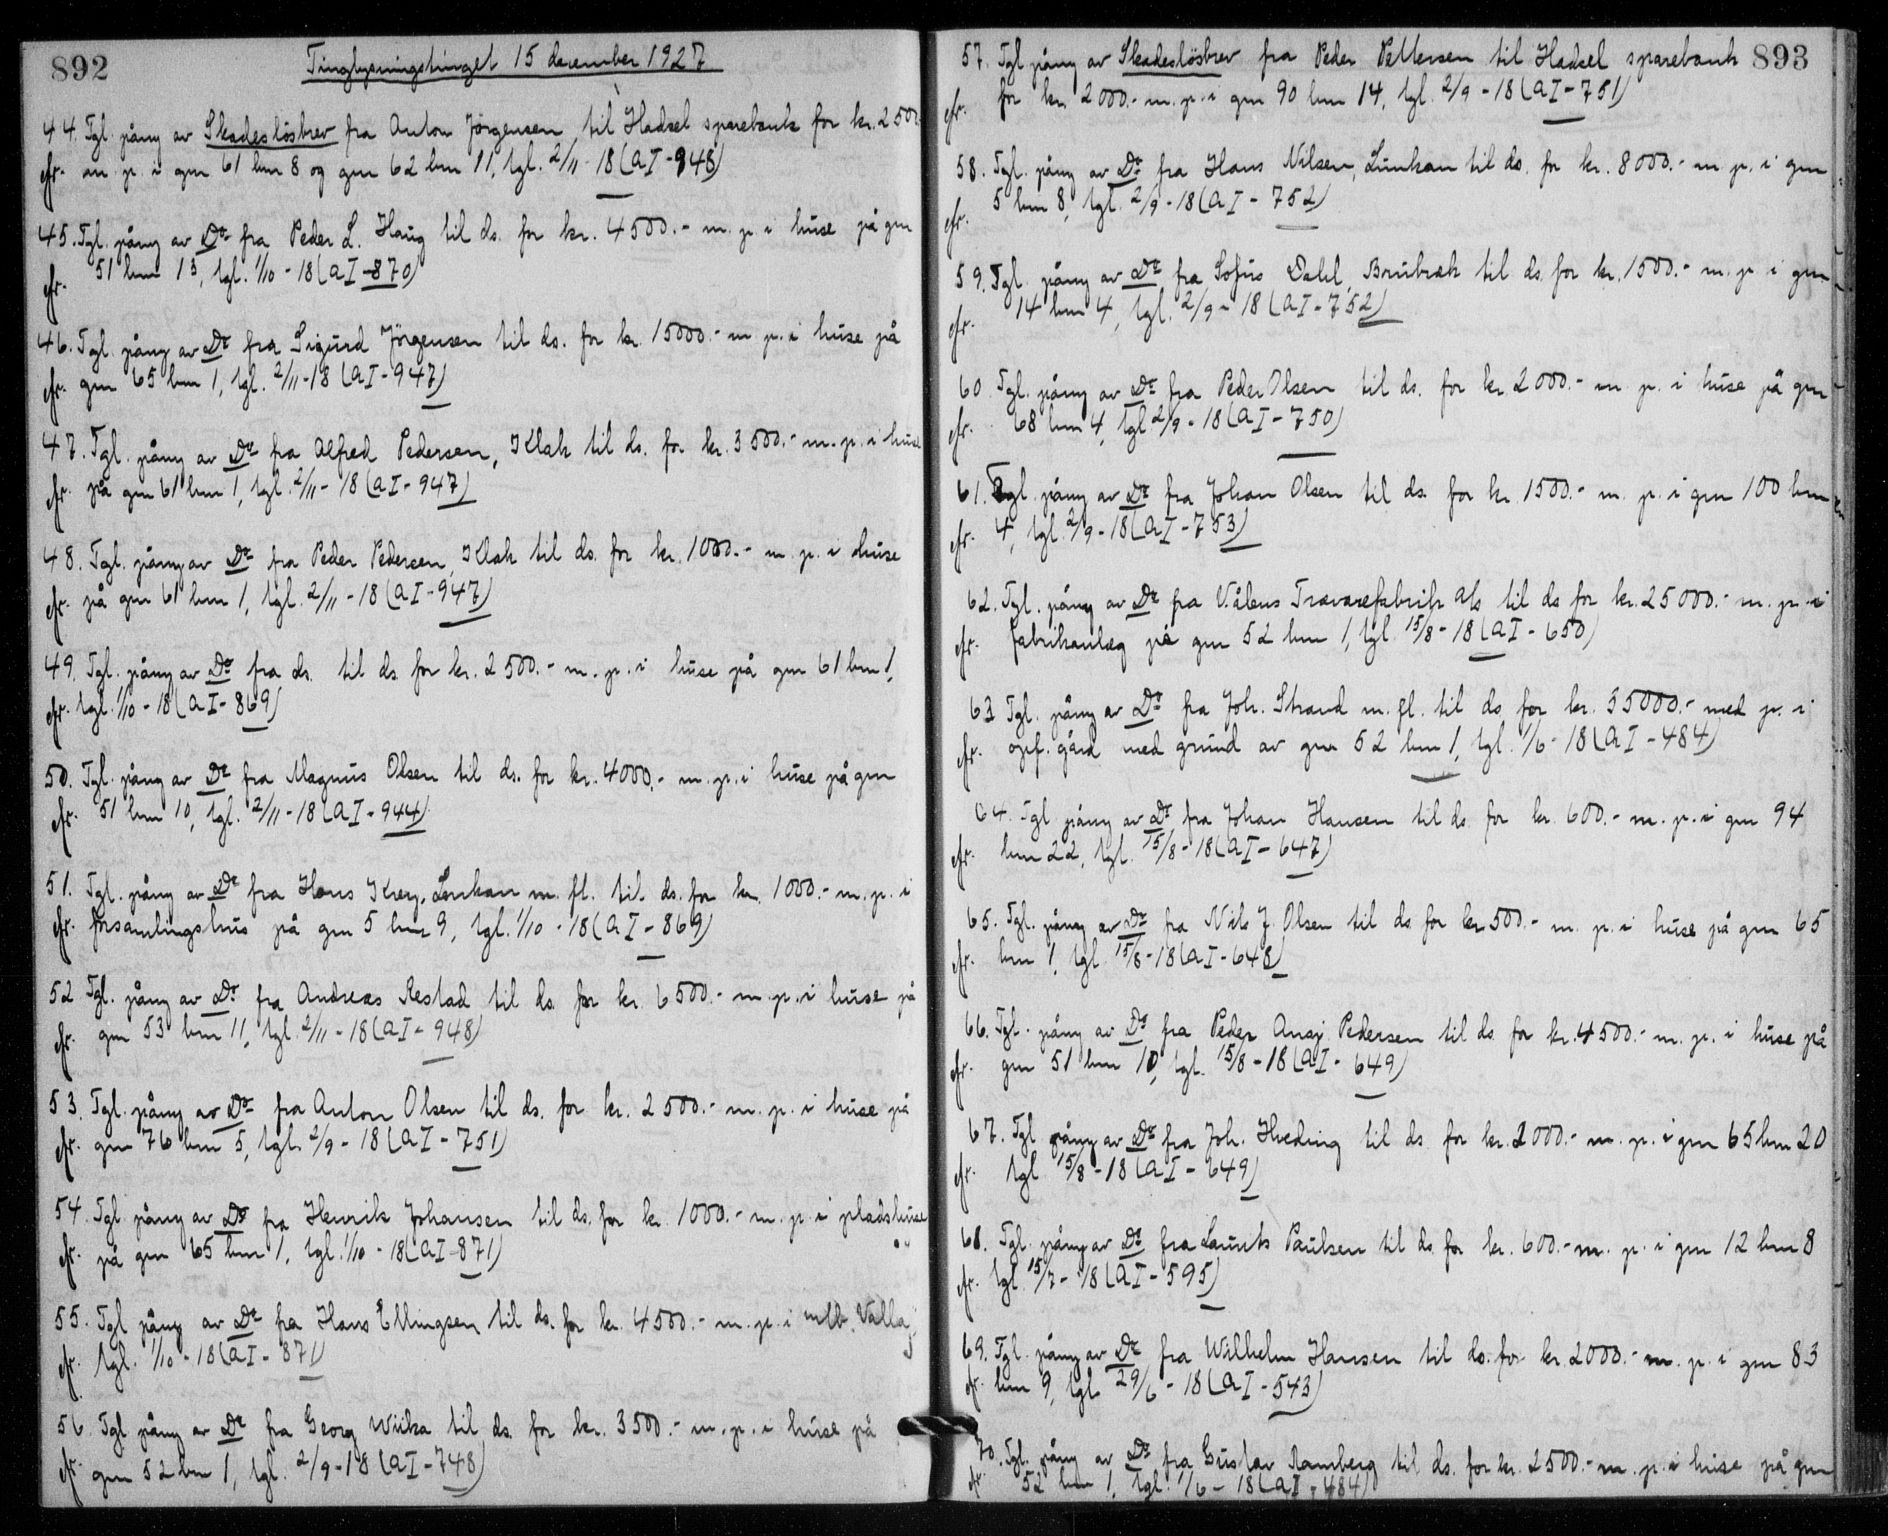 892
Tinglysningstinget 15 december 1927
44. Tgl. påny av Skadeslösbrev fra Anton Jörgensen til Hadsel sparebank for kr. 2500
efr. m. p. i gnr 61 bnr 8 og gnr 62 bnr 11, tgl. 2/11 - 18 (a I - 948)
45. Tgl. påny av Do fra Peder L. Haug til ds. for kr. 4500.- m. p. i huse på gnr
efr. 51 bnr 13, tgl. 1/10 - 18 (a I - 870)
46. Tgl. påny av Do fra Sigurd Jörgensen til ds. for kr. 15000.- m. p. i huse på
efr. gnr 65 bnr 1, tgl. 2/11 - 18 (a I - 947)
47. Tgl. påny av Do fra Alfred Pedersen, Klak til ds. for kr. 3500.- m. p. i huse
efr. på gnr 61 bnr 1, tgl. 2/11 - 18 (a I - 947)
48. Tgl. påny av Do fra Peder Pedersen, Klak til ds. for kr. 1000.- m. p. i huse
efr. på gnr 61 bnr 1, tgl. 2/11 - 18 (a I - 947)
49. Tgl. påny av Do fra ds. til ds. for kr. 2500.- m. p. i huse på gnr 61 bnr 1,
efr. tgl. 1/10 - 18 (a I - 869)
50. Tgl. påny av Do fra Magnus Olsen til ds. for kr. 4000.- m. p. i huse på gnr
efr. 51 bnr 10, tgl. 2/11 - 18 (a I - 944)
51. Tgl. påny av Do fra Hans Kreg. Lonkan m. fl. til ds. for kr. 1000.- m. p. i
efr. forsamlingshus på gnr 5 bnr 9, tgl. 1/10 - 18 (a I - 869)
52 Tgl. påny av Do fra Andreas Restad til ds. for kr. 6500.- m. p. i huse på
efr. gnr 53 bnr 11, tgl. 2/11 - 18 (a I - 948)
53. Tgl. påny av Do fra Anton Olsen til ds. for kr. 2500.- m. p. i huse på
efr. gnr 76 bnr 5, tgl. 2/9 - 18 (a I - 751)
54. Tgl påny av Do fra Henrik Johansen til ds. for kr. 1000.- m. p. i pladshuse
efr. på gnr 65 bnr 1, tgl. 1/10 - 18 (a I - 871)
55. Tgl påny av Do fra Hans Ellingsen til ds. for kr. 4500.- m. p. i mtb. Valla
efr. tgl. 1/10 - 18 (a I - 871)
56. Tgl påny av Do fra Georg Wiika til ds. for kr. 3500.- m. p. i huse på
efr. gnr 52 bnr 1, tgl. 2/9 - 18 (a I - 748)
893
57. Tgl påny av Skadeslösbrev fra Peder Pettersen til Hadsel sparebank
efr. for kr. 2000.- m. p. i gnr 90 bnr 14, tgl. 2/9 - 18 (a I - 751)
58. Tgl. påny av Do fra Hans Nilsen, Lunkan til ds. for kr. 8000.- m. p. i gnr
efr. 5 bnr 8, tgl. 2/9 - 18 (a I - 752)
59. Tgl. påny av Do fra Sofus Dahl, Brubræk til ds. for kr. 1500.- m. p. i gnr
efr. 14 bnr 4, tgl. 2/9 - 18 (a I - 752)
60 Tgl. påny av Do fra Peder Olsen til ds. for kr. 2000.- m. p. i huse på gnr
efr. 68 bnr 4, tgl 2/9 - 18 (a I - 750)
61. Tgl. påny av Do fra Johan Olsen til ds. for kr. 1500.- m. p. i gnr 100 bnr
efr. 4, tgl. 2/9 - 18 (a I - 753)
62. Tgl. påny av Do fra Vålens Trævarefabrik a/s til ds for kr. 25000.- m. p. i
efr. fabrikanlæg på gnr 52 bnr 1, tgl. 15/8 - 18 (a I - 650)
63 Tgl. påny av Do fra Joh. Strand m. fl. til ds for kr. 35000.- med p. i
efr. opf. gård med grund av gnr 52 bnr 1, tgl. 1/6 - 18 (a I - 484)
64. Tgl påny av Do fra Johan Hansen til ds. for kr. 600.- m. p. i gnr 94
efr. bnr 22, tgl. 15/8 - 18 (a I - 647)
65. Tgl. påny av Do fra Nils J. Olsen til ds. for kr 500.- m. p. i huse på gnr 65
efr. bnr 1, tgl. 15/8 - 18 (a I - 648)
66. Tgl. påny av Do fra Peder Ansj. Pedersen til ds. for kr. 4500.- m. p. i huse på
efr. gnr 51 bnr 10, tgl. 15/8 - 18 (a I - 649)
67. Tgl påny av Do fra Joh. Hveding til ds. for kr. 2000.- m. p. i gnr 65 bnr 20
efr. tgl 15/8 - 18 (a I - 649)
68. Tgl. påny av Do fra Laurits Paulsen til ds. for kr. 600.- m. p. i gnr 12 bnr 8
efr. tgl. 15/7 - 18 (a I - 595)
69. Tgl. påny av Do fra Wilhelm Hansen til ds. for kr. 2000.- m. p. i gnr 83
efr. bnr 9, tgl. 29/6 - 18 (a I - 543)
70. Tgl. påny av Do fra Gustav Ramberg til ds. for kr. 2500.- m. p. i huse på gnr
efr. 52 bnr 1, tgl. 1/6 - 18 (a I - 484)